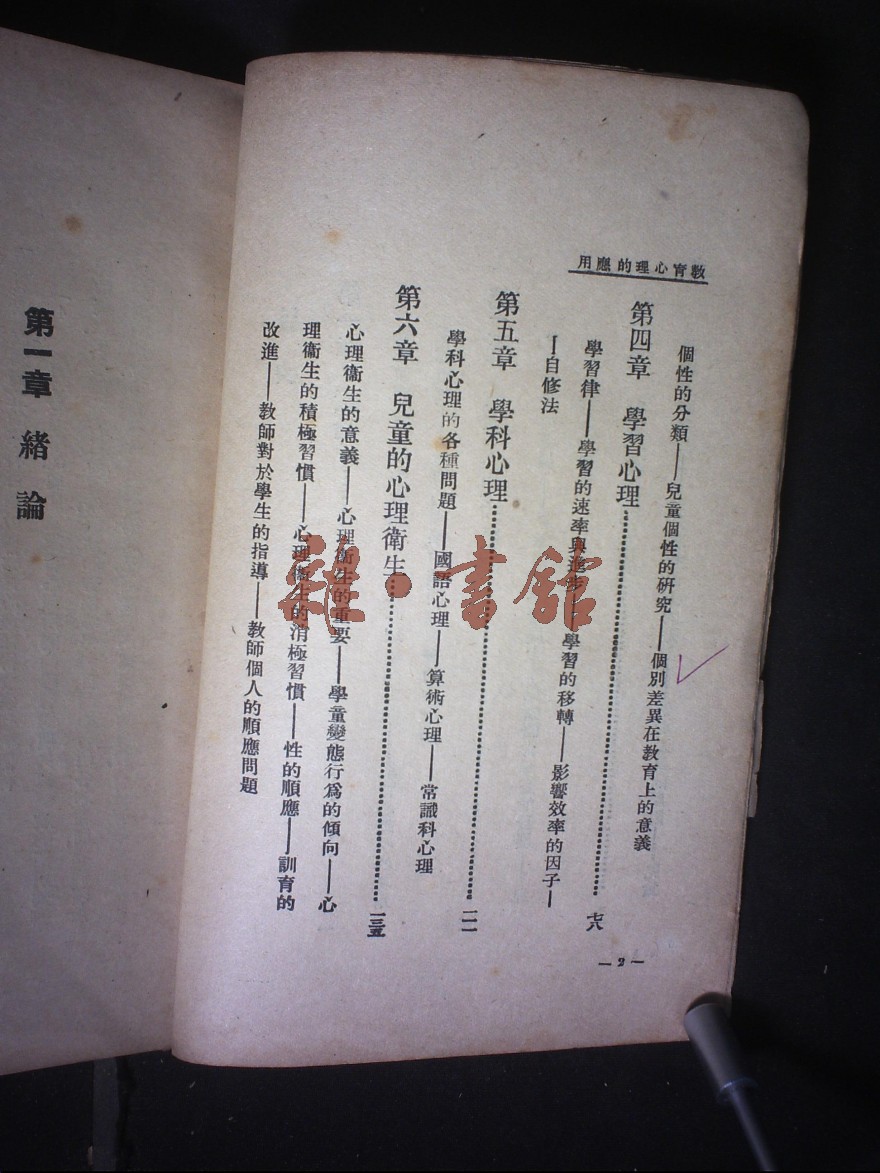 教育心理的應用
個性的分類——兒童個性的研究——個別差異在教育上的意義
第四章　學習心理…………七八
學習律——學習的速率與進步——學習的移轉——影響效率的因子—
—自修法
第五章　學科心理…………一一一
學科心理的各種問題——國語心理——算術心理——常識科心理
第六章　兒童的心理衛生…………一三五
心理衞生的意義——心理衞生的重要——學童變態行爲的傾向——心
理衞生的積極習慣——心理衞生的消極習慣——性的順應——訓育的
改進——教師對於學生的指導——教師個人的順應問題
— 2 —
第一章　緒論
雜·書館